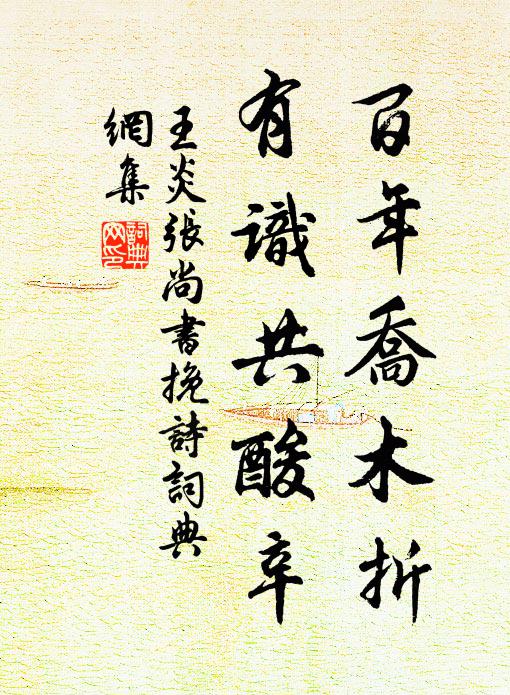 百年喬木折
有識共酸辛
王炎張尚書挽詩詞典
網集
詞典
网印